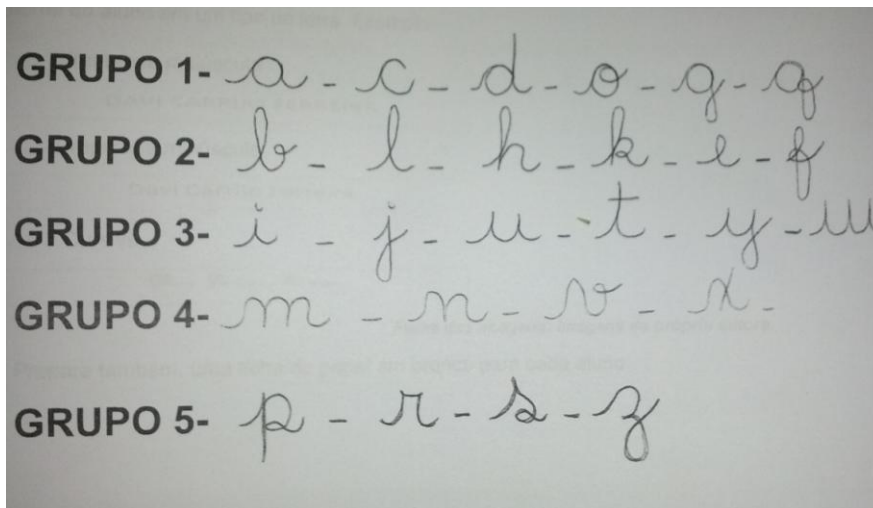 GRUPO 1- a - c - d - o - g - q
GRUPO 2- b - l - h - k - e - f
GRUPO 3- i - j - u - t - y - w
GRUPO 4- m - n - v - x -
GRUPO 5- p - r - s - z